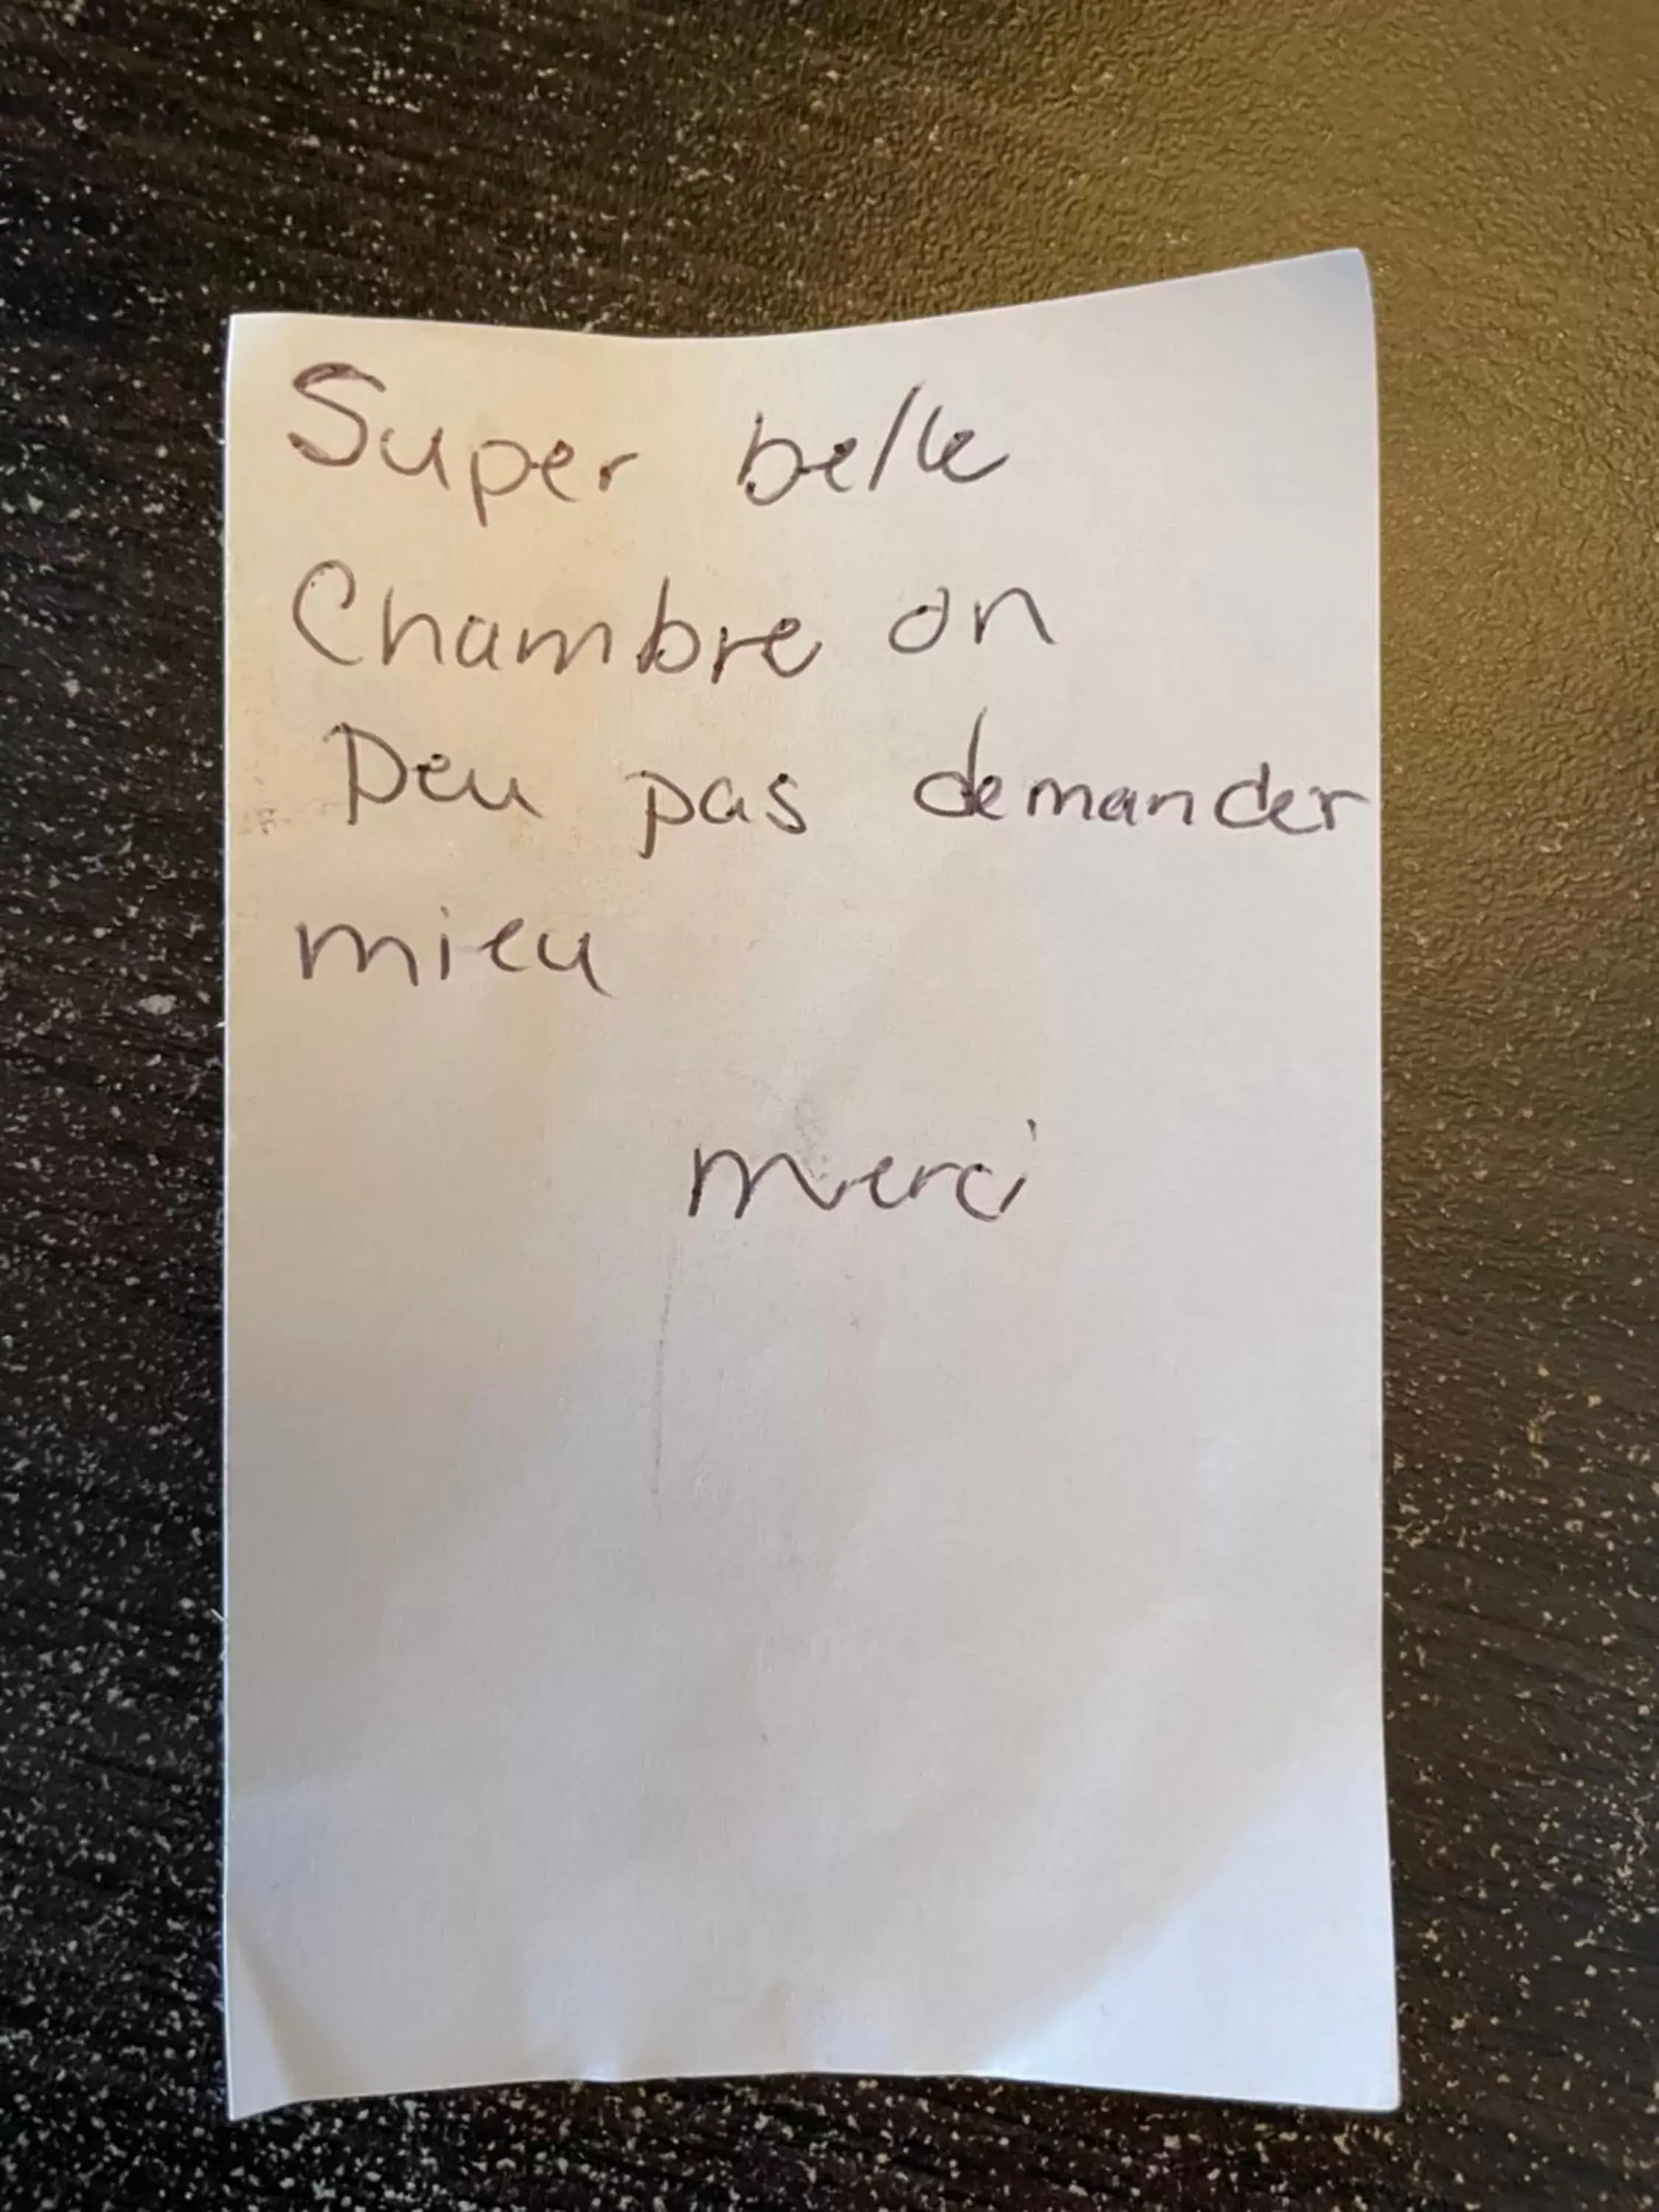 Super belle
Chambre on
Peu pas demander
mieu
merci